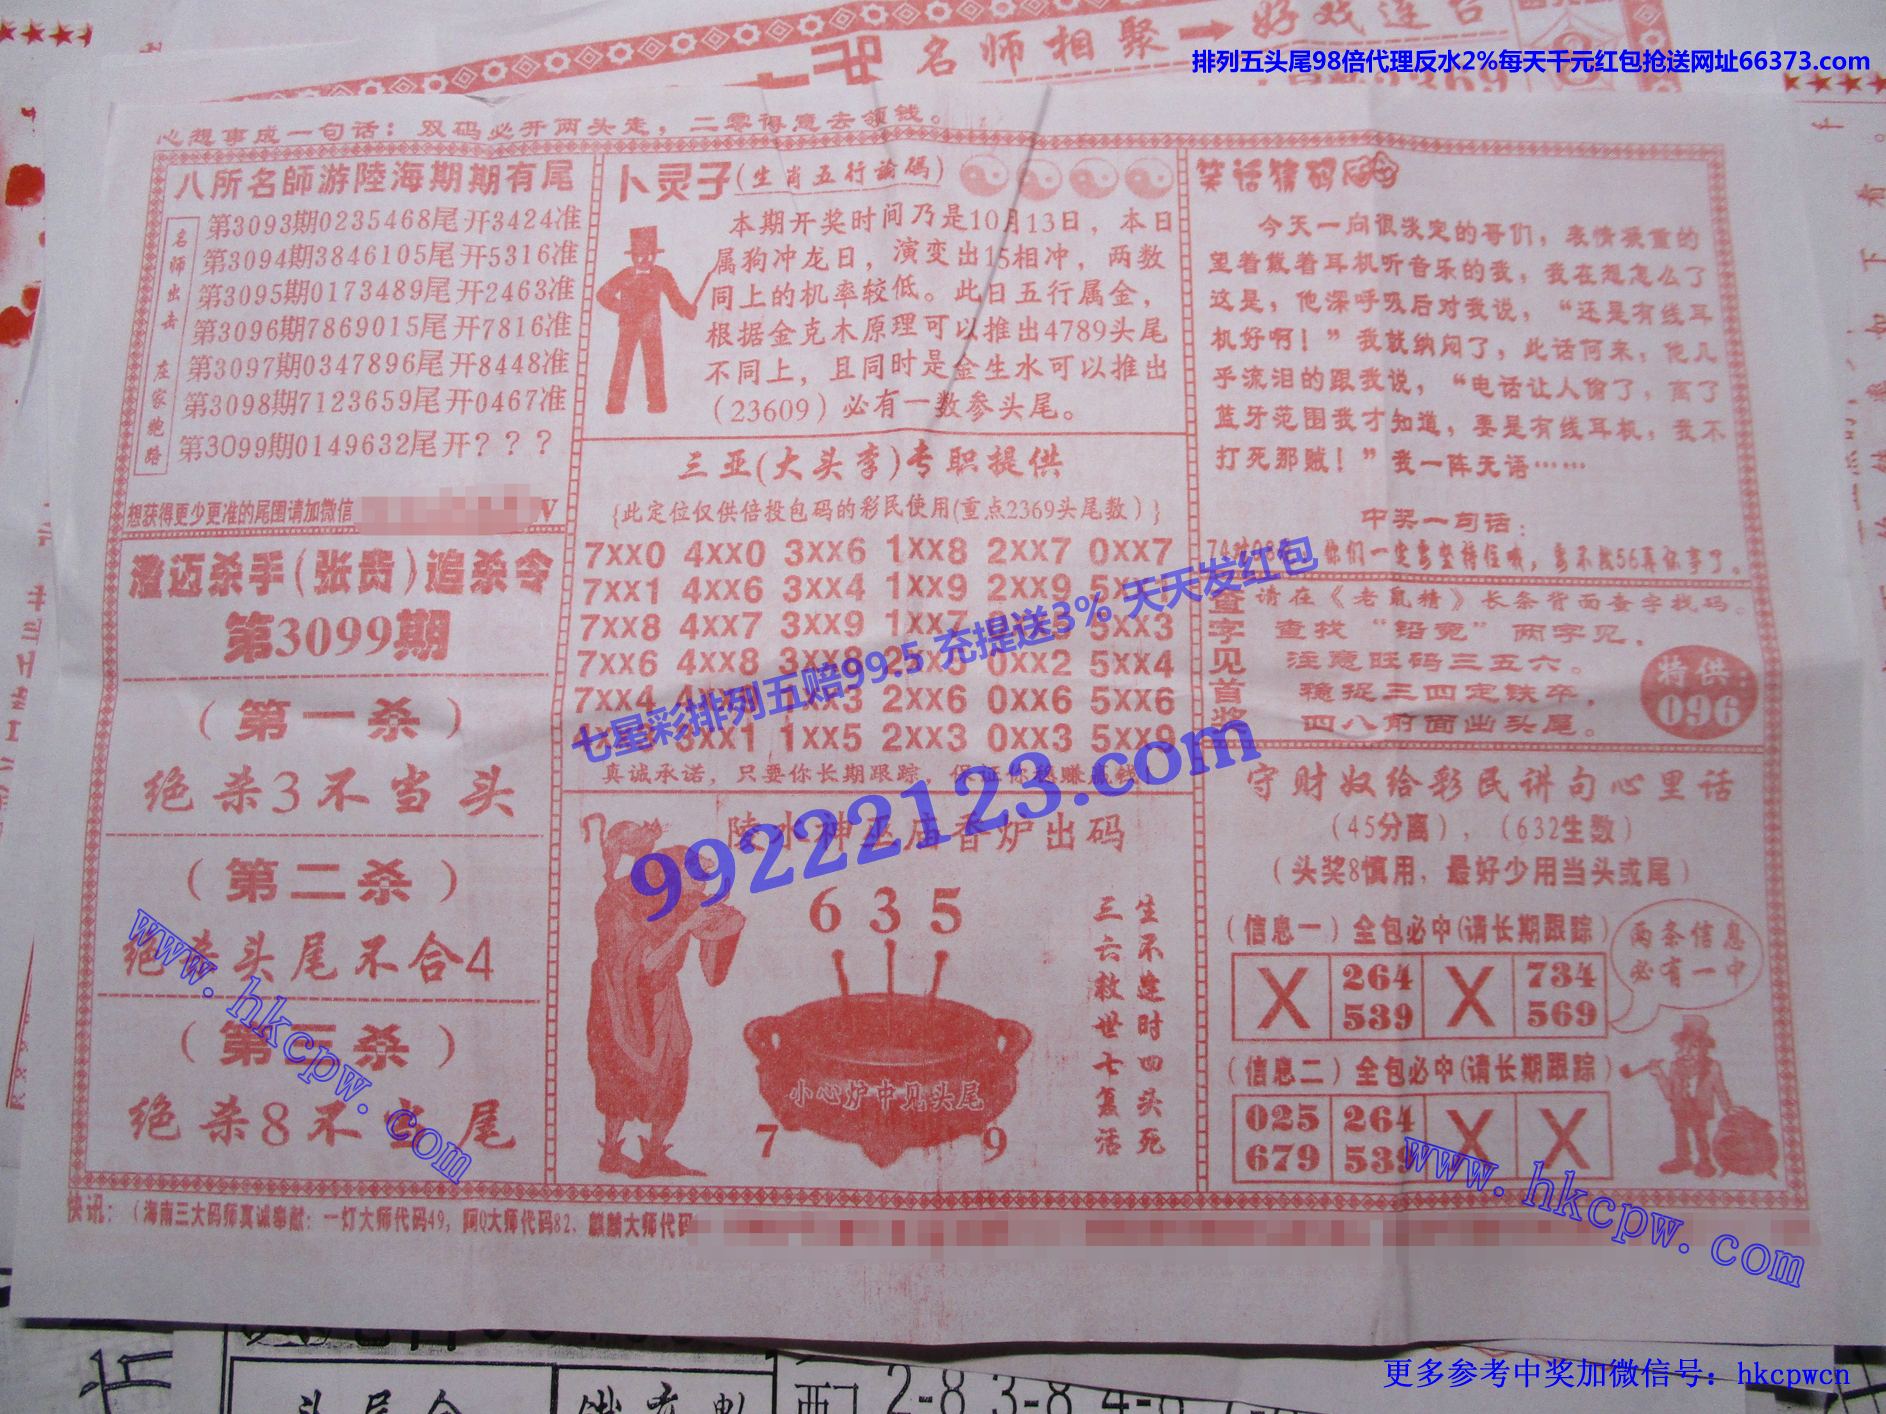 名师相聚 好戏连台
排列五头尾98倍代理反水2%每天千元红包抢送网址66373.com
心想事成一句话：双码必开两头走，二零得意去领钱。
八所名師游陸海期期有尾
名师出击 左家跑路
第3093期0235468尾开3424准
第3094期3846105尾开5316准
第3095期0173489尾开2463准
第3096期7869015尾开7816准
第3097期0347896尾开8448准
第3098期7123659尾开0467准
第3099期0149632尾开？？？
想获得更少更准的尾图请加微信
澄迈杀手(张贵)追杀令
第3099期
（第一杀）
绝杀3不当头
（第二杀）
绝杀头尾不合4
（第三杀）
绝杀8不当尾
卜灵子(生肖五行論碼)
本期开奖时间乃是10月13日，本日
属狗冲龙日，演变出15相冲，两数
同上的机率较低。此日五行属金，
根据金克木原理可以推出4789头尾
不同上，且同时是金生水可以推出
（23609）必有一数参头尾。
三亚(大头李)专职提供
{此定位仅供倍投包码的彩民使用(重点2369头尾数）}
7xx0 4xx0 3xx6 1xx8 2xx7 0xx7
7xx1 4xx6 3xx4 1xx9 2xx9 5xx1
7xx8 4xx7 3xx9 1xx7 5xx3
7xx6 4xx8 3xx8 2xx5 0xx2 5xx4
7xx4 2xx6 0xx6 5xx6
3xx1 1xx5 2xx3 0xx3 5xx9
真诚承诺，只要你长期跟踪，保证你稳赚赢钱
陵水神巫庙香炉出码
6 3 5
小心炉中见头尾
7 9
生不逢时四头死
三六救世七复活
笑话猜码
今天一向很淡定的哥们，表情凝重的
望着戴着耳机听音乐的我，我在想怎么了
这是，他深呼吸后对我说，“还是有线耳
机好啊！”我就纳闷了，此话何来，他几
乎流泪的跟我说，“电话让人偷了，离了
蓝牙范围我才知道，要是有线耳机，我不
打死那贼！”我一阵无语……
中奖一句话：
你们一定要坚持住哦，要不然56再你事了。
查字见首奖
请在《老鼠精》长条背面查字找码。
查找“铅宽”两字见，
注意旺码三五六。
稳捉三四定铁卒，
四八前面出头尾。
特供：
096
守财奴给彩民讲句心里话
（45分离），（632生数）
（头奖8慎用，最好少用当头或尾）
（信息一）全包必中(请长期跟踪)
X 264 X 734
539 569
两条信息
必有一中
（信息二）全包必中(请长期跟踪)
025 264 X X
679 539
快讯：（海南三大码师真诚奉献：一灯大师代码49，阿Q大师代码82、麒麟大师代码
七星彩排列五赔99.5 充提送3% 天天发红包
99222123.com
www.hkcpw.com
www.hkcpw.com
2-8 3-8
更多参考中奖加微信号：hkcpwcn